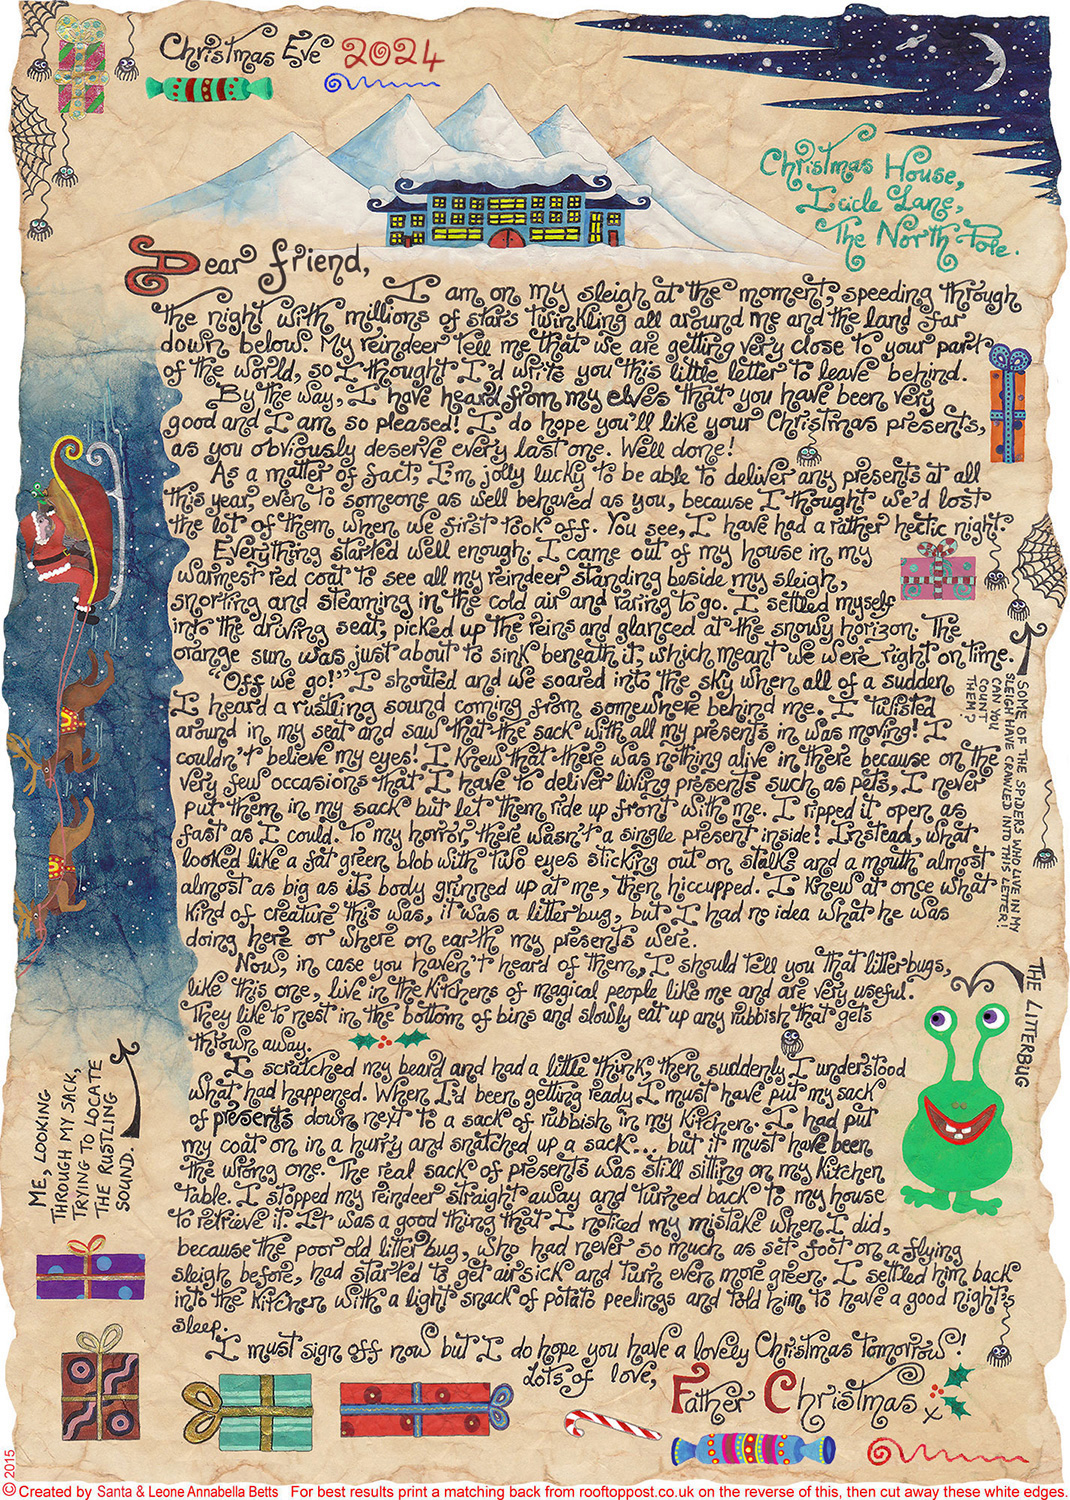 Christmas Eve 2024
Christmas House,
Icicle Lane,
The North Pole.
Dear friend,
I am on my sleigh at the moment, speeding through
the night with millions of stars twinkling all around me and the land far
down below. My reindeer tell me that we are getting very close to your part
of the world, so I thought I'd write you this little letter to leave behind.
By the way, I have heard from my elves that you have been very
good and I am so pleased! I do hope you'll like your Christmas presents,
as you obviously deserve every last one. Well done!
As a matter of fact, I'm jolly lucky to be able to deliver any presents at all
this year, even to someone as well behaved as you, because I thought we'd lost
the lot of them when we first took off. You see, I have had a rather hectic night.
Everything started well enough. I came out of my house in my
warmest red coat to see all my reindeer standing beside my sleigh,
snorting and steaming in the cold air and raring to go. I settled myself
into the driving seat, picked up the reins and glanced at the snowy horizon. The
orange sun was just about to sink beneath it, which meant we were right on time.
"Off we go!" I shouted and we soared into the sky when all of a sudden
I heard a rustling sound coming from somewhere behind me. I twisted
around in my seat and saw that the sack with all my presents in was moving! I
couldn't believe my eyes! I knew that there was nothing alive in there because on the
very few occasions that I have to deliver living presents such as pets, I never
put them in my sack but let them ride up front with me. I ripped it open as
fast as I could. To my horror, there wasn't a single present inside! Instead, what
looked like a fat green blob with two eyes sticking out on stalks and a mouth almost
almost as big as its body grinned up at me, then hiccupped. I knew at once what
kind of creature this was, it was a litterbug, but I had no idea what he was
doing here or where on earth my presents were.
Now, in case you haven't heard of them, I should tell you that litterbugs,
like this one, live in the kitchens of magical people like me and are very useful.
They like to nest in the bottom of bins and slowly eat up any rubbish that gets
thrown away.
I scratched my beard and had a little think, then suddenly I understood
what had happened. When I'd been getting ready I must have put my sack
of presents down next to a sack of rubbish in my kitchen. I had put
my coat on in a hurry and snatched up a sack... but it must have been
the wrong one. The real sack of presents was still sitting on my kitchen
table. I stopped my reindeer straight away and turned back to my house
to retrieve it. It was a good thing that I noticed my mistake when I did,
because the poor old litter bug, who had never so much as set foot on a flying
sleigh before, had started to get airsick and turn even more green. I settled him back
into the kitchen with a light snack of potato peelings and told him to have a good night's
sleep.
I must sign off now but I do hope you have a lovely Christmas tomorrow!
Lots of love,
Father Christmas x
SOME OF THE SPIDERS WHO LIVE IN MY
SLEIGH HAVE CRAWLED INTO THIS LETTER!
CAN YOU
COUNT
THEM?
THE LITTERBUG
ME, LOOKING
THROUGH MY SACK,
TRYING TO LOCATE
THE RUSTLING
SOUND.
© 2015
Created by Santa & Leone Annabella Betts For best results print a matching back from rooftoppost.co.uk on the reverse of this, then cut away these white edges.